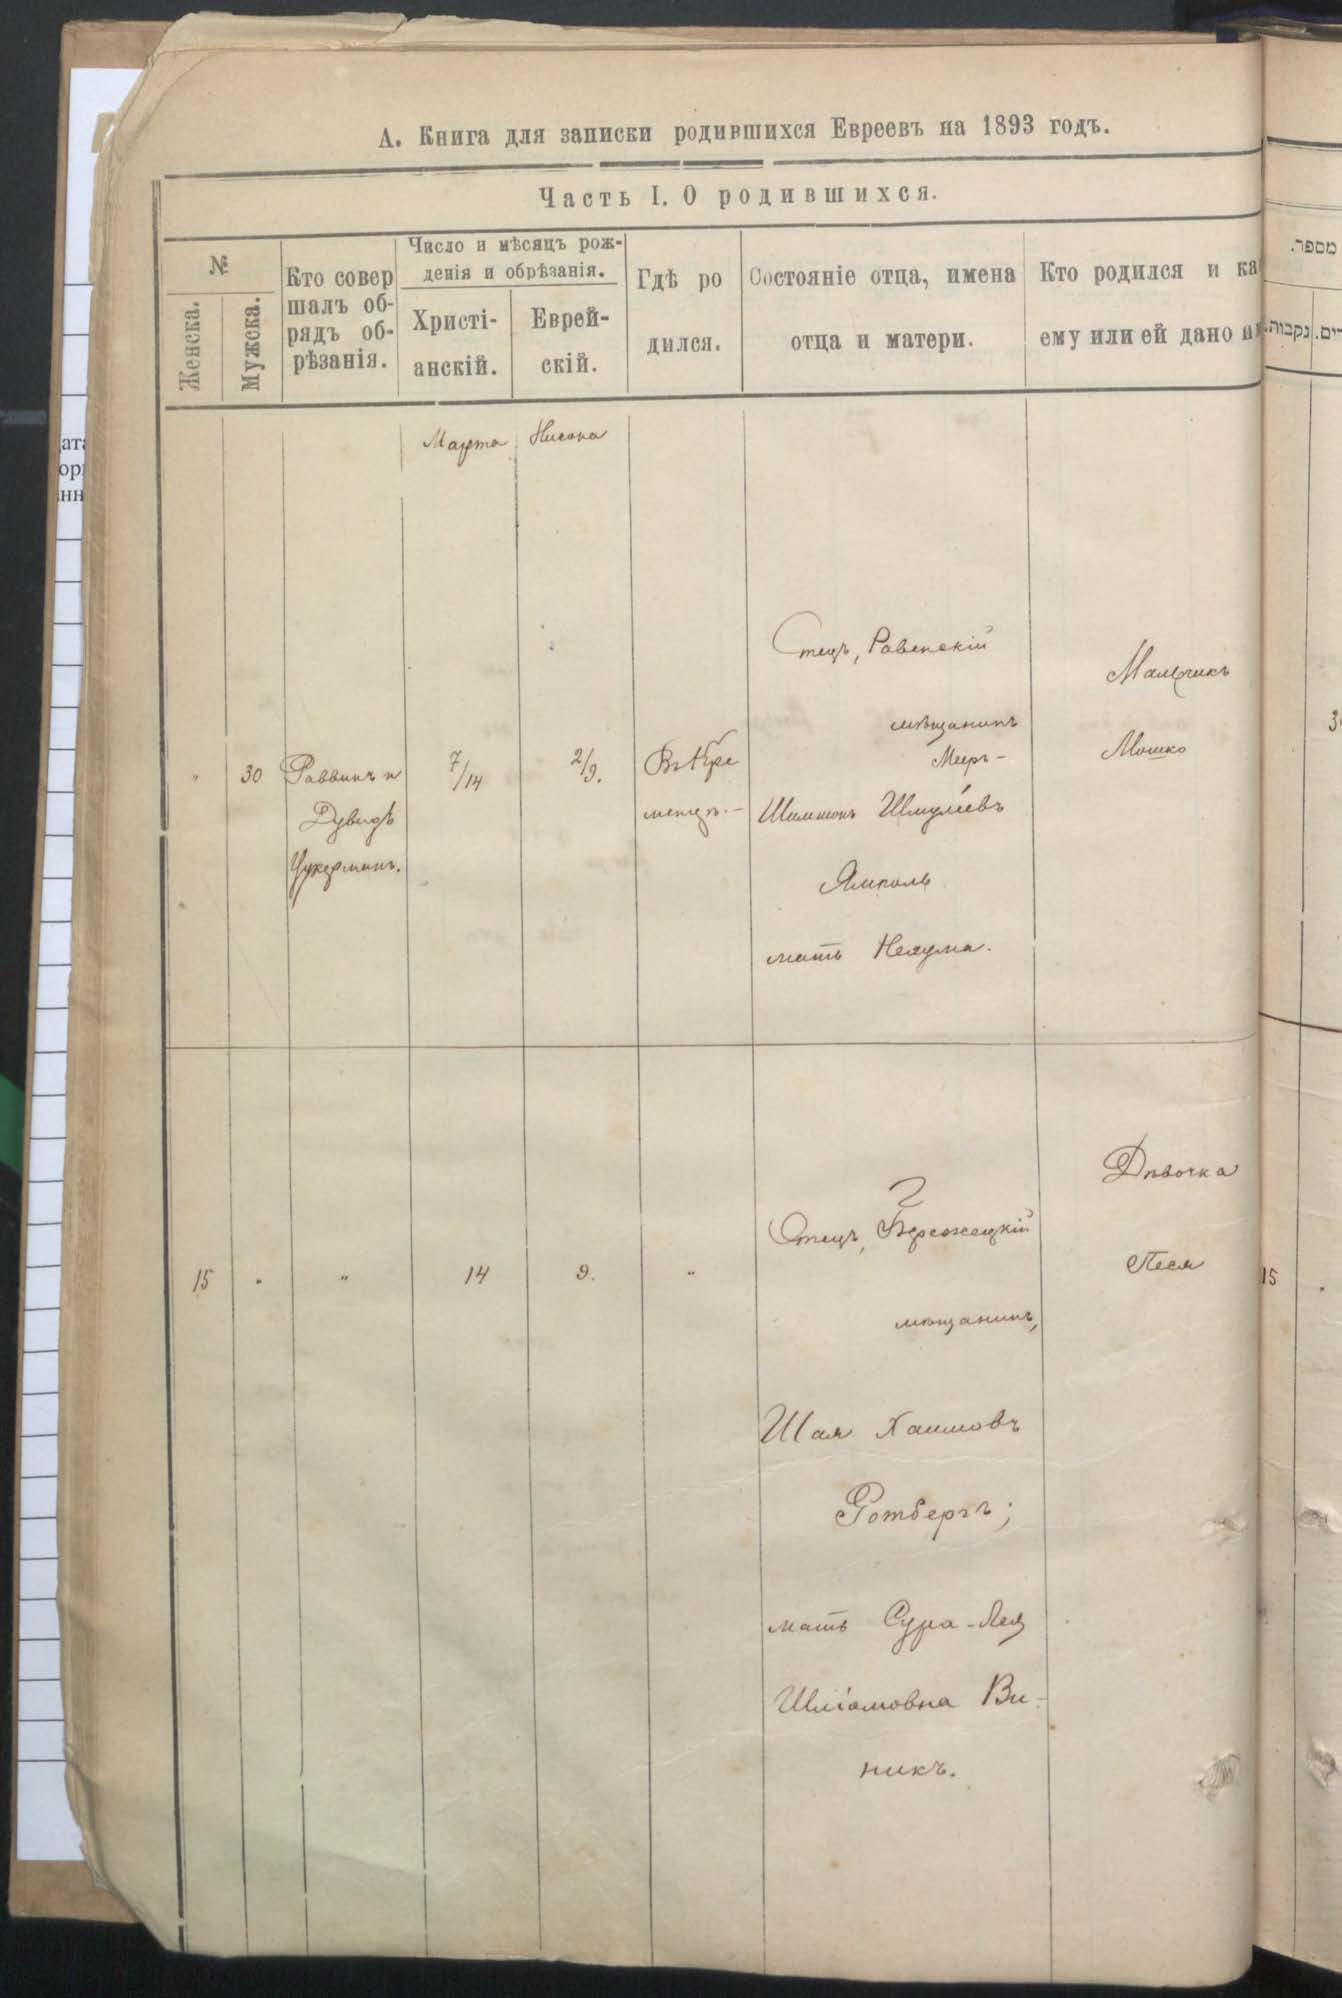 А. Книга для записки родившихся Евреевъ на 1893 годъ.
Часть I. О родившихся.
№
Женска.
Мужска.
Кто совер
шалъ об-
рядъ об-
рѣзанія.
Число и мѣсяцъ рож-
денія и обрѣзанія.
Христі-
анскій.
Еврей-
скій.
Гдѣ ро
дился.
Состояніе отца, имена
отца и матери.
Кто родился и ка
ему или ей дано и
Марта
Нисона
"
30
Раввинъ и
Дувидъ
Цукерманъ.
7/14
2/9.
Въ Кре
менцѣ.-
Отецъ, Ровенскій
мѣщанинъ
Меръ-
Шимшонъ Шмулёвъ
Ямполь
мать Нехума.
Мальчикъ
Мошко
15
"
"
14
9.
"
Отецъ, Бережецкій
мѣщанинъ,
Шая Хаимовъ
Ротбергъ;
мать Сура-Лея
Шліомовна Ви-
никъ.
Дѣвочка
Песя
מספר.
נקבות.
רים.
15